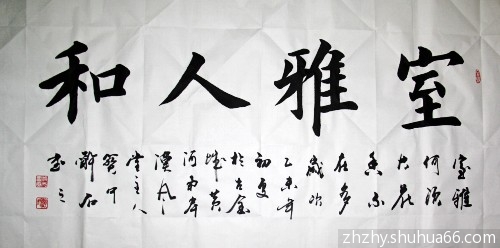 室雅人和
室雅
何须
大花
香不
在多
歲次
乙未年
初夏
於古金
城黄
河南岸
堂主人
石
zhzhy.shuhua66.com